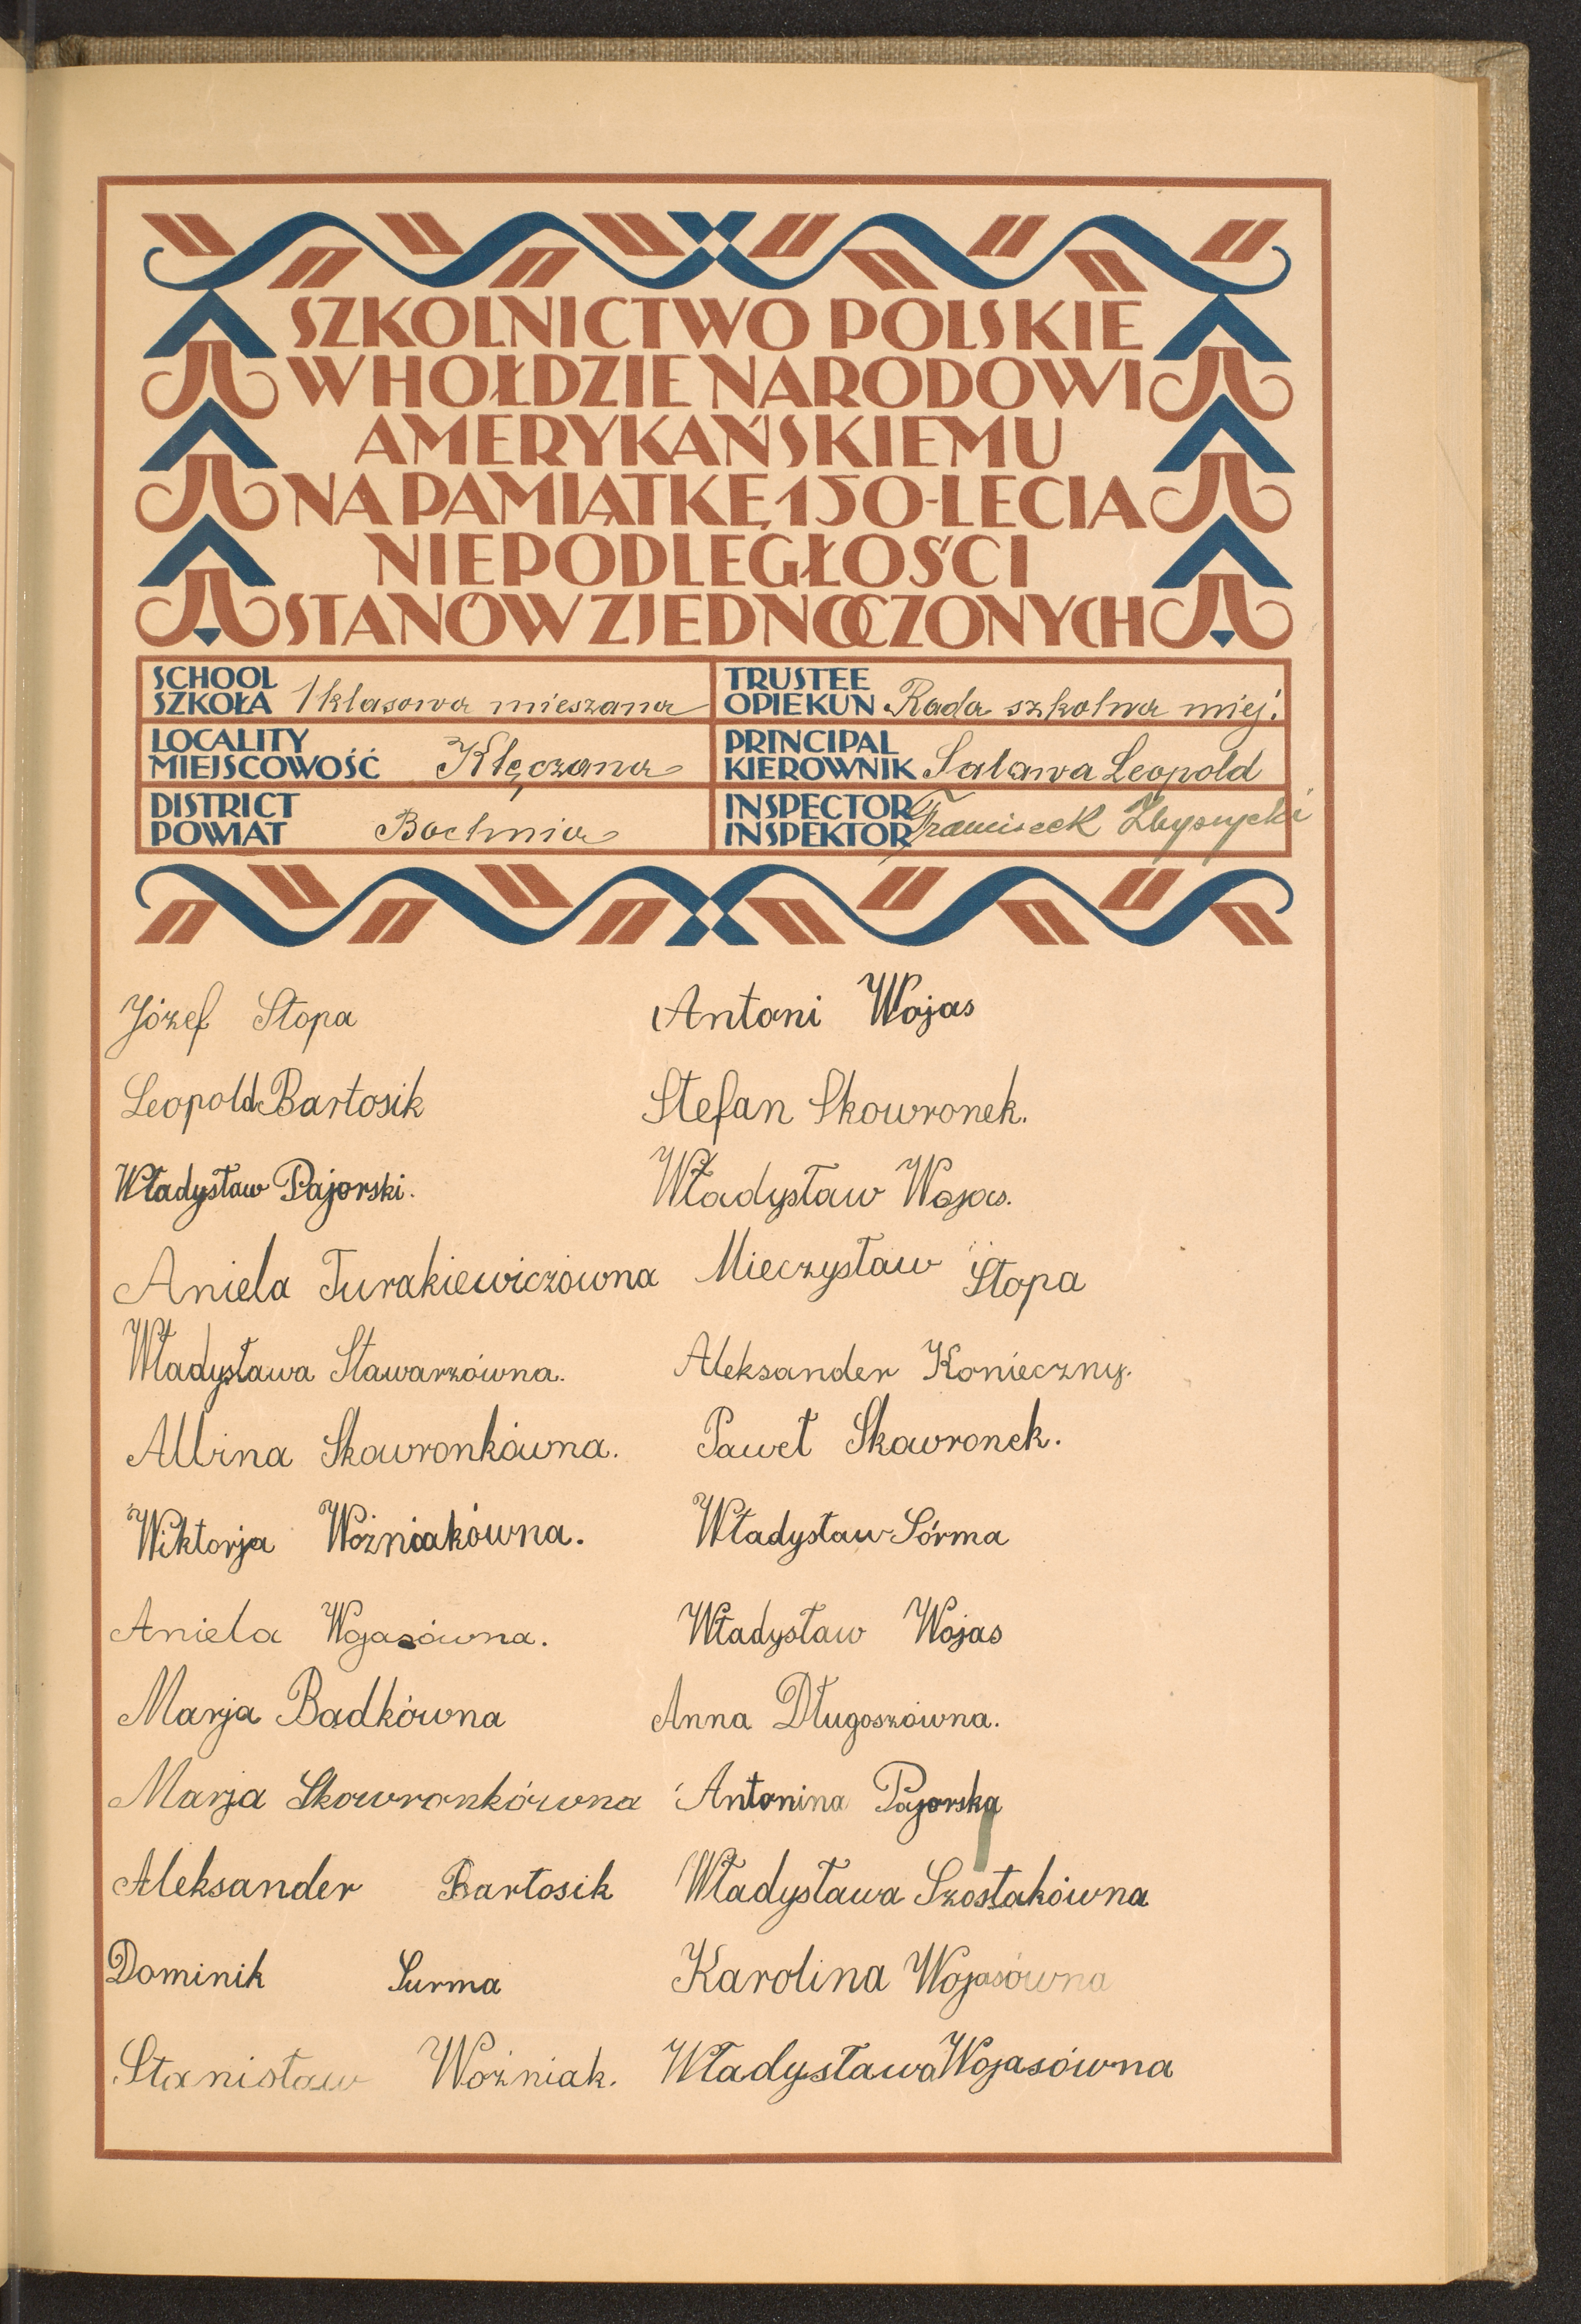 SZKOLNICTWO POLSKIE
W HOŁDZIE NARODOWI
AMERYKAŃSKIEMU
NA PAMIĄTKĘ 150-LECIA
NIEPODLEGŁOŚCI
STANÓW ZJEDNOCZONYCH
SCHOOL
SZKOŁA 1 klasowa mieszana
TRUSTEE
OPIEKUN Rada szkolna miej.
LOCALITY
MIEJSCOWOŚĆ Kłęczana
PRINCIPAL
KIEROWNIK Salawa Leopold
DISTRICT
POWIAT Bochnia
INSPECTOR
INSPEKTOR Franciszek
Józef Stopa
Leopold Bartosik
Władysław Pajorski.
Aniela Turakiewiczówna
Władysława Stawarzówna.
Albina Skowronkówna.
Wiktorja Woźniakówna.
Aniela Wojasówna.
Marja Badkówna
Marja Skowronkówna
Aleksander Bartosik
Dominik Surma
Stanisław Woźniak.
Antoni Wojas
Stefan Skowronek.
Władysław Wojas.
Mieczysław Stopa
Aleksander Konieczny.
Paweł Skowronek.
Władysław Sórma
Władysław Wojas
Anna Długoszówna.
Antonina Pajorska
Władysława Szostakówna
Karolina Wojasówna
Władysława Wojasówna